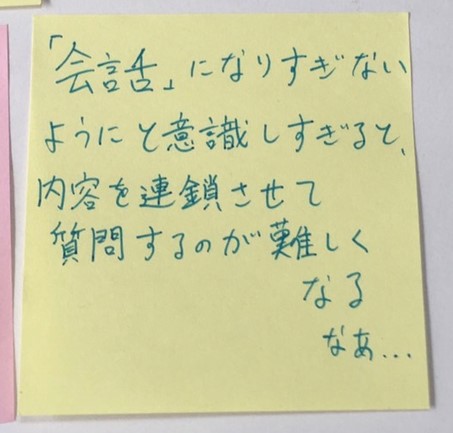 「会話」になりすぎない
ようにと意識しすぎると、
内容を連鎖させて
質問するのが難しく
なる
なぁ...